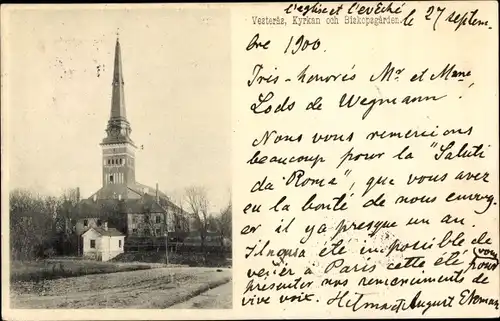 l'église et l'évêché
Vesterås, Kyrkan och Biskopsgården.
le 27 septem-
bre 1900.
Très-honorés Mr et Mme
Lods de Wegmann!
Nous vous remercions
beaucoup pour la "Saluti
da Roma", que vous avez
eu la bonté de nous envoy-
er il ya presque un an.
Il nous a été impossible de
venir à Paris cette été pour vous
présenter nos remerciments de
vive voix. Hilma et August Ekman